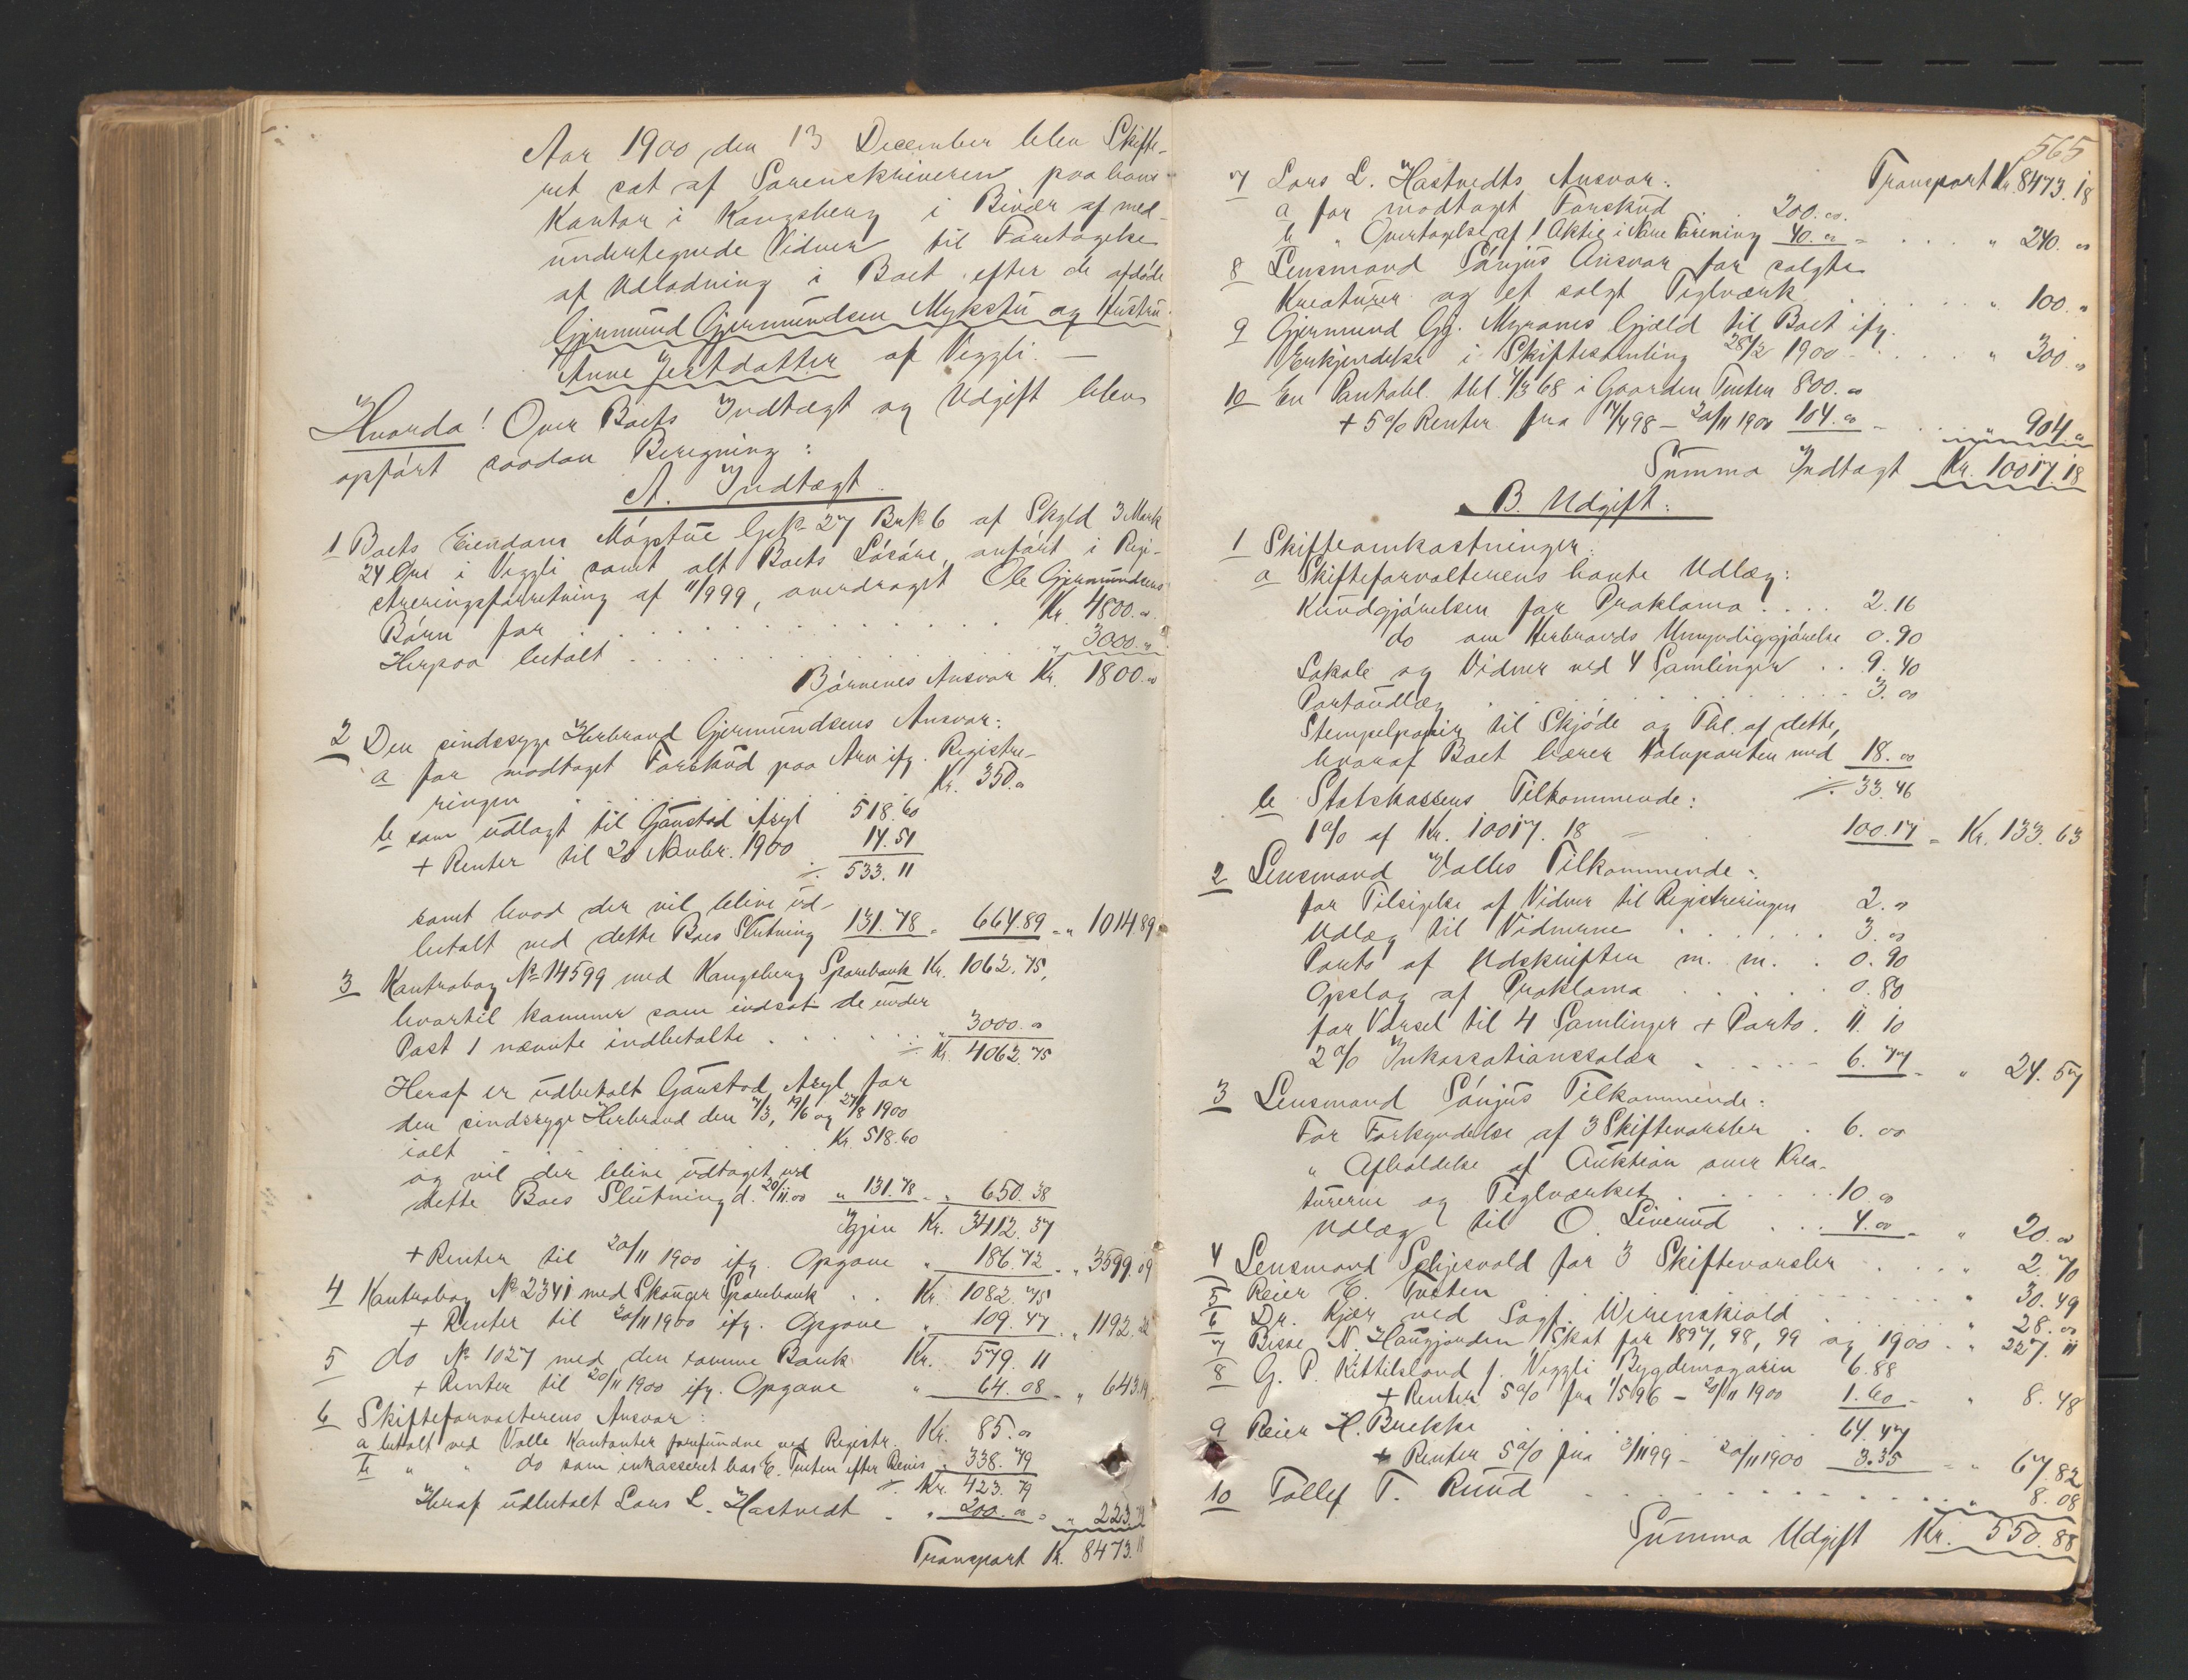 Aar 1900, den 13 December blev Skifte-
ret sat af Sorenskriveren paa hans
Kontor i Kongsberg i Bivær af med-
undertegnede Vidner til Foretagelse
af Udlodning i Boet efter de afdøde
Gjermund Gjermundsen Mykstu og Hustru
Anne Jertdatter af Veggli. —
Hvorda! Over Boets Indtægt og Udgift blev
opført saadan Beregning:
A. Indtægt.
1 Boets Eiendom Mogstue Gk. 27 Brk 6 af Skyld 3 Mark
24 Øre i Veggli samt alt Boets Løsøre, anført i Regi-
streringsforretning af 11/9 99, overdraget Ole Gjermundsens
Børn for . . . . Kr. 4800.00
Herpaa betalt . . . . " 3000. "
Børnenes Ansvar Kr. 1800.00
2 Den sindssyge Herbrand Gjermundsens Ansvar:
a for modtaget Forskud paa Arv ifg. Registre-
ringen . . . . Kr. 350.00
b som udlagt til Gaustad Asyl 518.60
+ Renter til 20 Novbr. 1900 14.51
÷ 533.11
samt hvad der vil blive ud-
betalt ved dette Boes Slutning 131.78 = 664.89 = " 1014.89
3 Kontrabog No 14599 med Kongsberg Sparebank Kr. 1062.75,
hvortil kommer som indsat de under
Post 1 nævnte indbetalte . . . . " 3000.00
÷ Kr. 4062.75
Heraf er udbetalt Gaustad Asyl for
den sindssyge Herbrand den 7/3, 19/6 og 27/8 1900
ialt . . . . Kr. 518.60
og vil der blive udtaget ved
dette Boes Slutning d. 20/11.00 " 131.78 = " 650.38
Igjen Kr. 3412.37
+ Renter til 20/11 1900 ifg. Opgave " 186.72 = " 3599.09
4 Kontrabog No 2341 med Skouger Sparebank . . Kr. 1082.75
+ Renter til 20/11 1900 ifg. Opgave " 109.47 = " 1192.22
5 do No 1027 med den samme Bank Kr. 579.11
+ Renter til 20/11 1900 ifg. Opgave " 64.08 = " 643.19
6 Skifteforvalterens Ansvar:
a betalt ved Valle Kontanter forefundne ved Registr. Kr. 85.00
b " " do som inkasseret hos E. Tveten efter Revis " 338.79
÷ Kr. 423.79
Heraf udbetalt Lars L. Hastvedt . " 200.00 = " 223.79
Transport K. 8473.18
565
Transport Kr. 8473.18
7 Lars L. Hastvedts Ansvar:
a for modtaget Forskud . . 200.00.
b " Overtagelse af 1 Aktie i Nore Forening 40.00 = . . . . " 240.00
8 Lensmand Sönjus Ansvar for solgte
Kreaturer og et solgt Teglværk . . . . " 100. "
9 Gjermund Gj. Myranes Gjæld til Boet ifg.
Erkjendelse i Skiftesamling 28/2 1900 . . . . " 300 "
10 En Pantobl. tbl. 4/3 68 i Gaarden Tveten 800.00
+ 5% Renter fra 14/4 98 – 20/11 1900 104.00 = . . " 904 "
Summa Indtægt Kr. 10017.18
B. Udgift:
1 Skifteomkostninger:
a Skifteforvalterens havte Udlæg:
Kundgjørelsen for Proklama . . . . 2.16
do om Herbrands Umyndiggjørelse 0.90
Lokale og Vidner ved 4 Samlinger . . 9.40
Portoudlæg . . . . 3.00
Stempelpapir til Skjøde og Thl. af dette,
hvoraf Boet bærer Halvparten med 18.00
÷ 33.46
b Statskassens Tilkommende:
1% af Kr. 10017.18 — 100.17 = Kr. 133.63
2 Lensmand Valles Tilkommende:
for Tilsigelse af Vidner til Registreringen 2. "
Udlæg til Vidnerne . . . . 3.00
Porto af Udskriften m. m. . 0.90
Opslag af Proklama . . . . 0.80
for Varsel til 4 Samlinger + Porto . 11.10
2% Inkassationssalær . . . . 6.77 = " 24.57
3 Lensmand Sönjus Tilkommende:
For Forkyndelse af 3 Skiftevarsler . 6.00
" Afholdelse af Auktion over Krea-
turerne og Teglværket . . . . 10.00
Udlæg til O. Liverud . . . 4.00 = " 20.00
4 Lensmand Schjesvold for 3 Skiftevarsler . . . . " 2.70
5 Reier E. Tveten . . . . " 30.49
6 Dr. Kjær ved Sagf. Werenskiold . . . . " 28.00
7 Bisse N. Haugjorden Skat for 1897, 98, 99 og 1900 . . " 227.11
8 G. P. Kittilsland f. Veggli Bygdemagasin 6.88
+ Renter 5% fra 1/5 96 – 20/11 1900 1.60 = " 8.48
9 Reier H. Brekke . . . . 64.47
+ Renter 5% fra 3/11 99 – 20/11 1900 3.35 = " 67.82
10 Tollef T. Ruud . . . . " 8.08
Summa Udgift Kr. 550.88